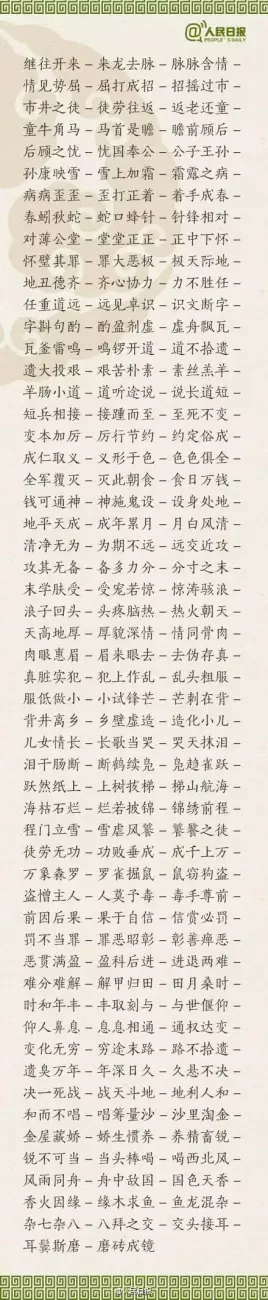 @人民日报
PEOPLE'S DAILY
继往开来－来龙去脉－脉脉含情－
情见势屈－屈打成招－招摇过市－
市井之徒－徒劳往返－返老还童－
童牛角马－马首是瞻－瞻前顾后－
后顾之忧－忧国奉公－公子王孙－
孙康映雪－雪上加霜－霜露之病－
病病歪歪－歪打正着－着手成春－
春蚓秋蛇－蛇口蜂针－针锋相对－
对薄公堂－堂堂正正－正中下怀－
怀璧其罪－罪大恶极－极天际地－
地丑德齐－齐心协力－力不胜任－
任重道远－远见卓识－识文断字－
字斟句酌－酌盈剂虚－虚舟飘瓦－
瓦釜雷鸣－鸣锣开道－道不拾遗－
遗大投艰－艰苦朴素－素丝羔羊－
羊肠小道－道听途说－说长道短－
短兵相接－接踵而至－至死不变－
变本加厉－厉行节约－约定俗成－
成仁取义－义形于色－色色俱全－
全军覆灭－灭此朝食－食日万钱－
钱可通神－神施鬼设－设身处地－
地平天成－成年累月－月白风清－
清净无为－为期不远－远交近攻－
攻其无备－备多力分－分寸之末－
末学肤受－受宠若惊－惊涛骇浪－
浪子回头－头疼脑热－热火朝天－
天高地厚－厚貌深情－情同骨肉－
肉眼惠眉－眉来眼去－去伪存真－
真脏实犯－犯上作乱－乱头粗服－
服低做小－小试锋芒－芒刺在背－
背井离乡－乡壁虚造－造化小儿－
儿女情长－长歌当哭－哭天抹泪－
泪干肠断－断鹤续凫－凫趋雀跃－
跃然纸上－上树拔梯－梯山航海－
海枯石烂－烂若披锦－锦绣前程－
程门立雪－雪虐风饕－饕餮之徒－
徒劳无功－功败垂成－成千上万－
万象森罗－罗雀掘鼠－鼠窃狗盗－
盗憎主人－人莫予毒－毒手尊前－
前因后果－果于自信－信赏必罚－
罚不当罪－罪恶昭彰－彰善瘅恶－
恶贯满盈－盈科后进－进退两难－
难分难解－解甲归田－田月桑时－
时和年丰－丰取刻与－与世偃仰－
仰人鼻息－息息相通－通权达变－
变化无穷－穷途末路－路不拾遗－
遗臭万年－年深日久－久悬不决－
决一死战－战天斗地－地利人和－
和而不唱－唱筹量沙－沙里淘金－
金屋藏娇－娇生惯养－养精畜锐－
锐不可当－当头棒喝－喝西北风－
风雨同舟－舟中敌国－国色天香－
香火因缘－缘木求鱼－鱼龙混杂－
杂七杂八－八拜之交－交头接耳－
耳鬓斯磨－磨砖成镜
@人民日报